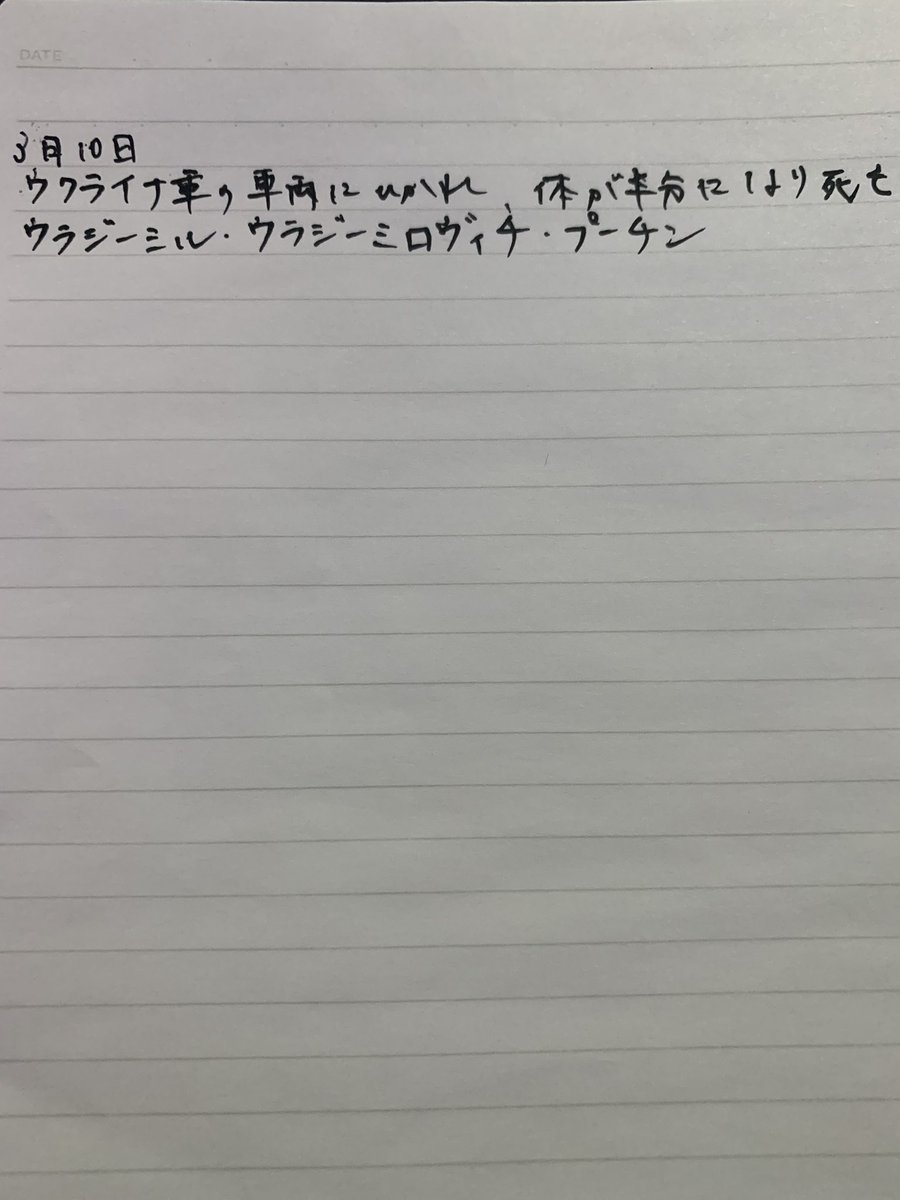 DATE
3月10日
ウクライナ軍の車両にひかれ、体が半分により死亡
ウラジーミル・ウラジーミロヴィチ・プーチン